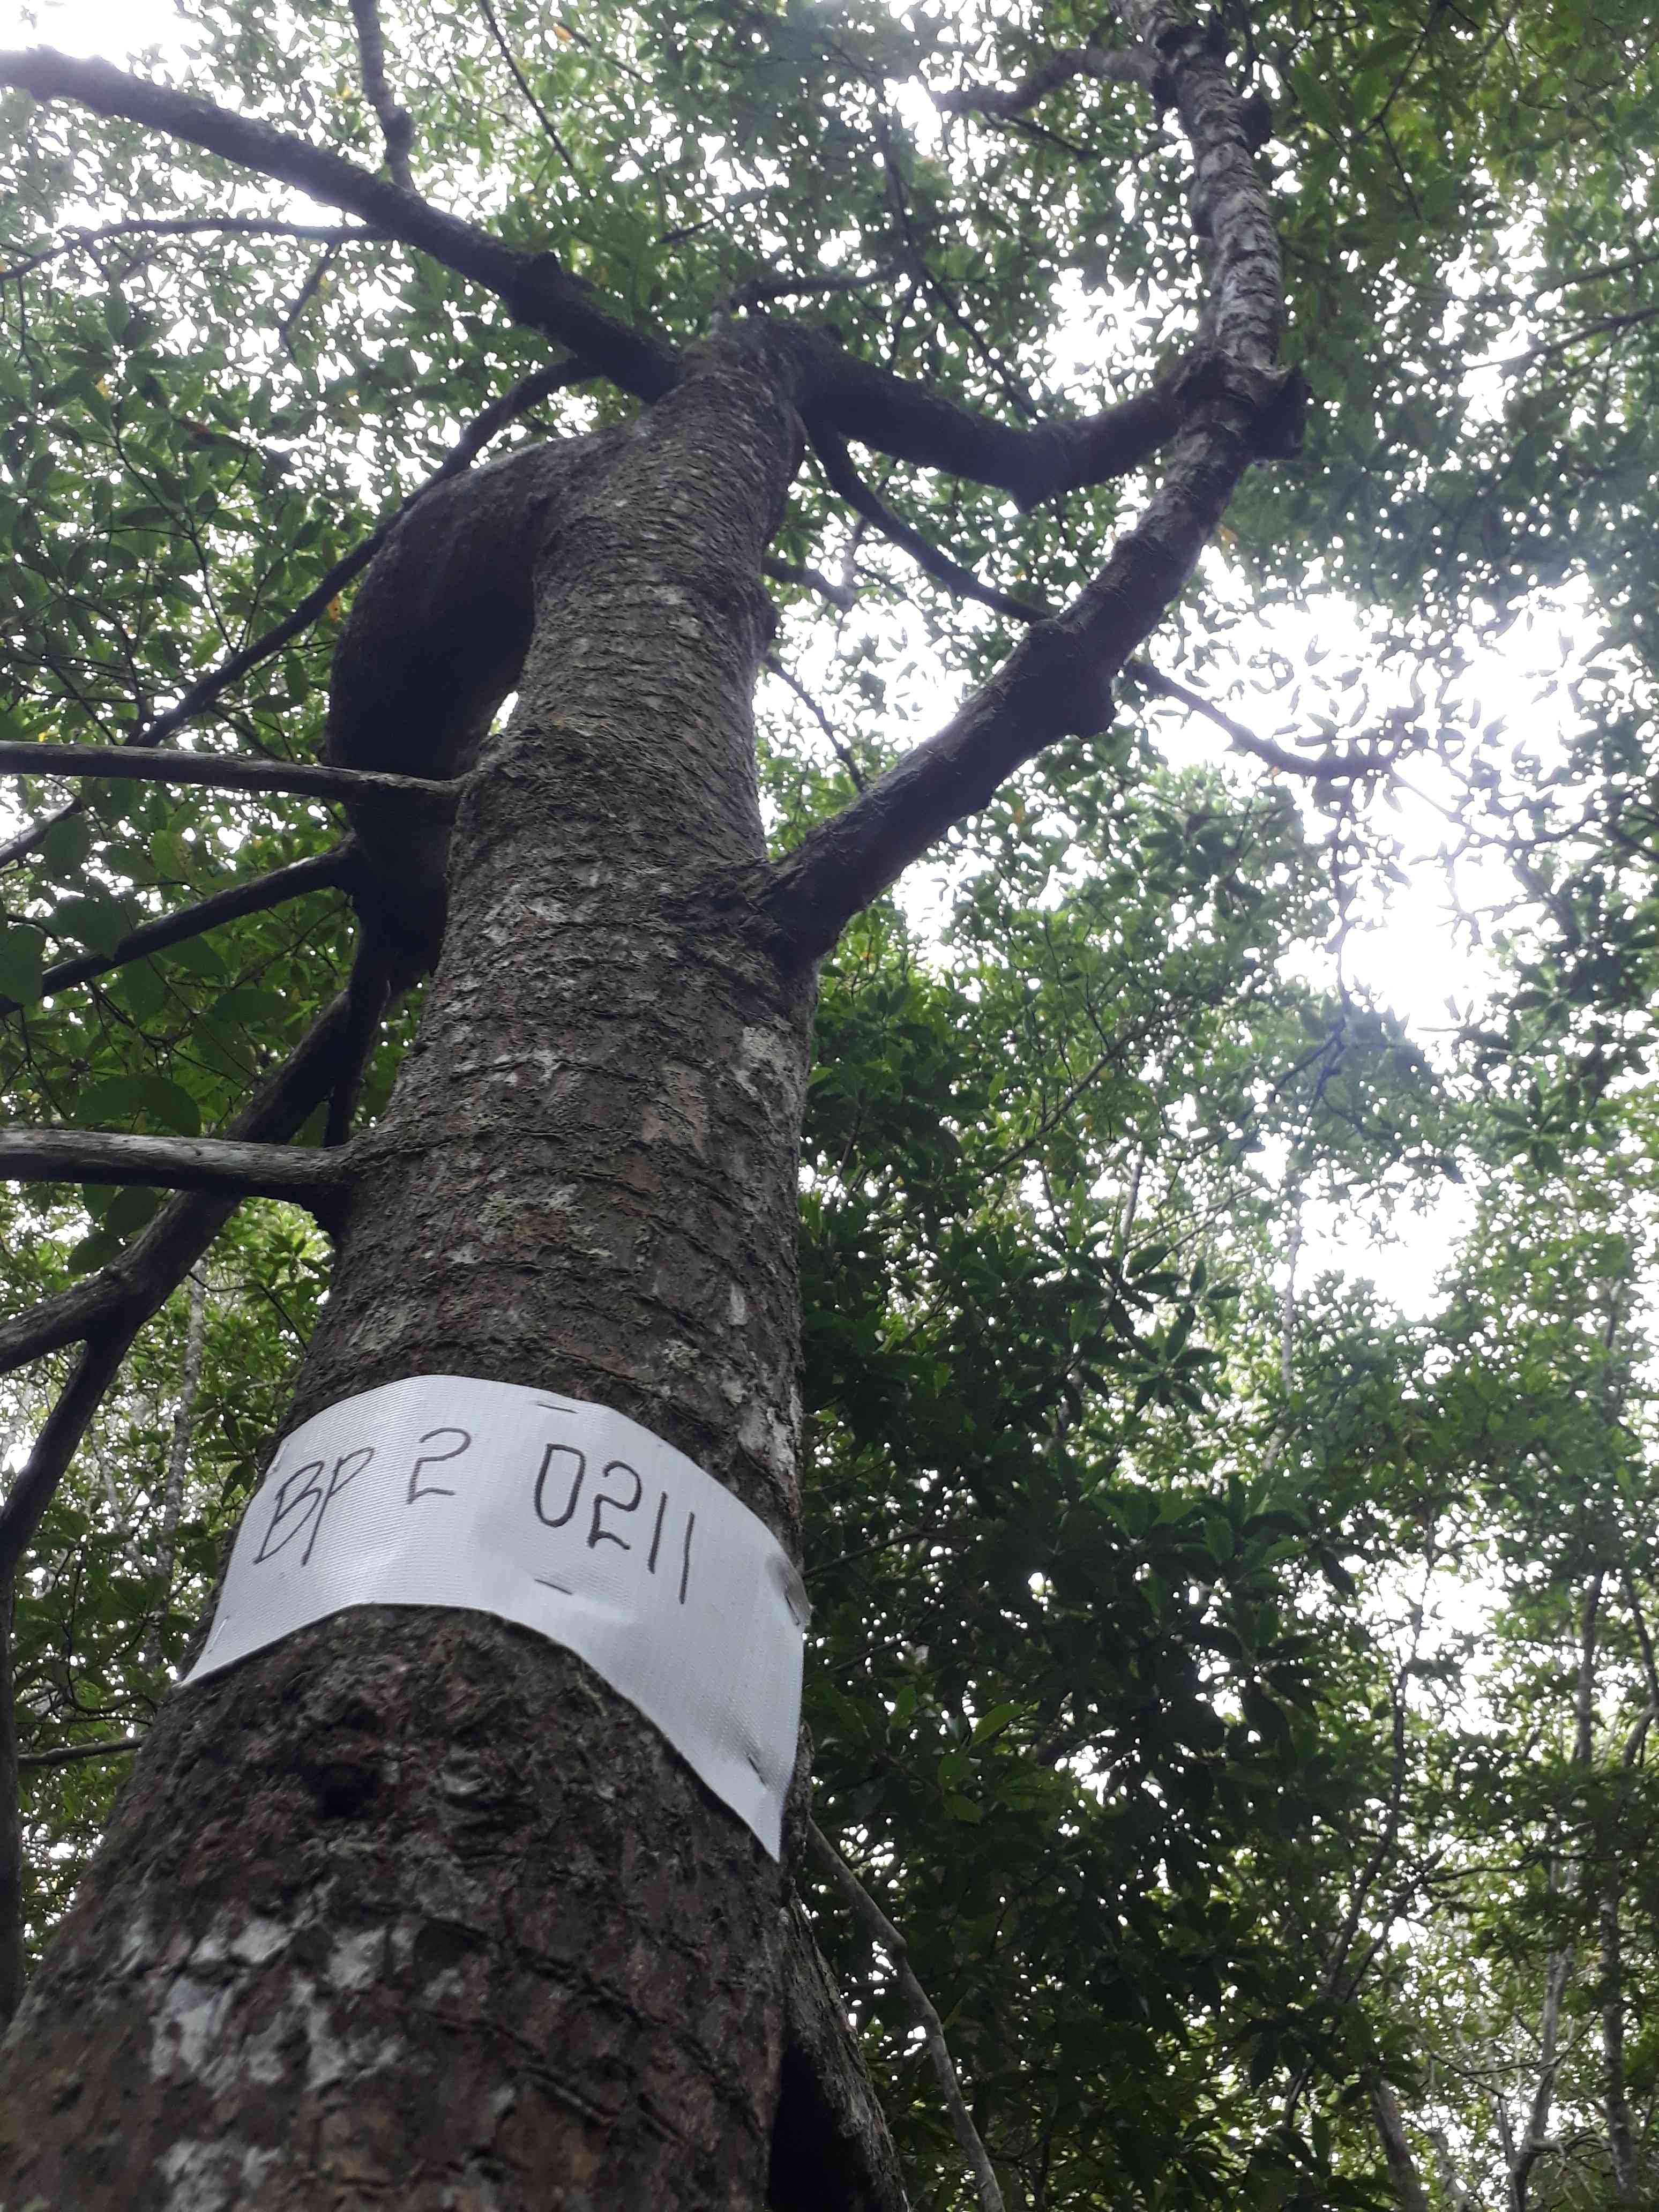 BP 2 0211